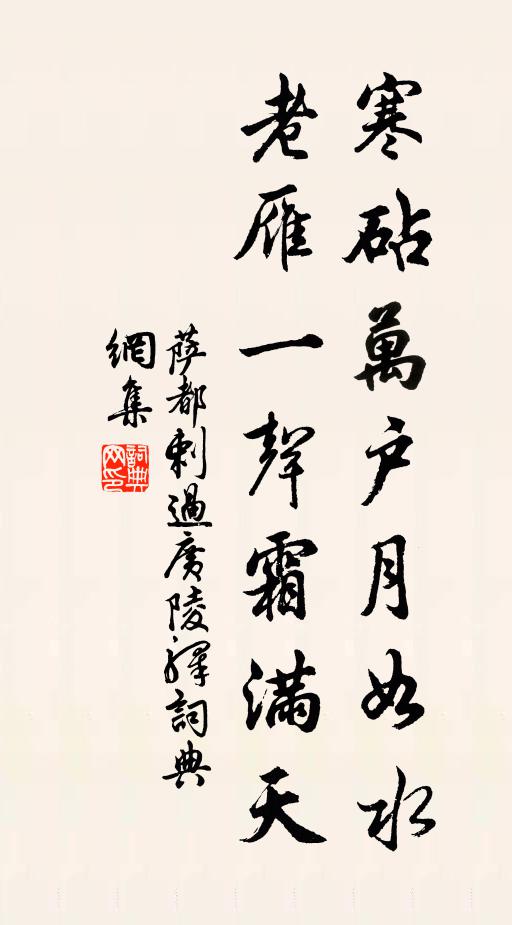 寒砧萬戶月如水
老雁一聲霜滿天
薩都剌過廣陵驛詞典
網集
詞典網印